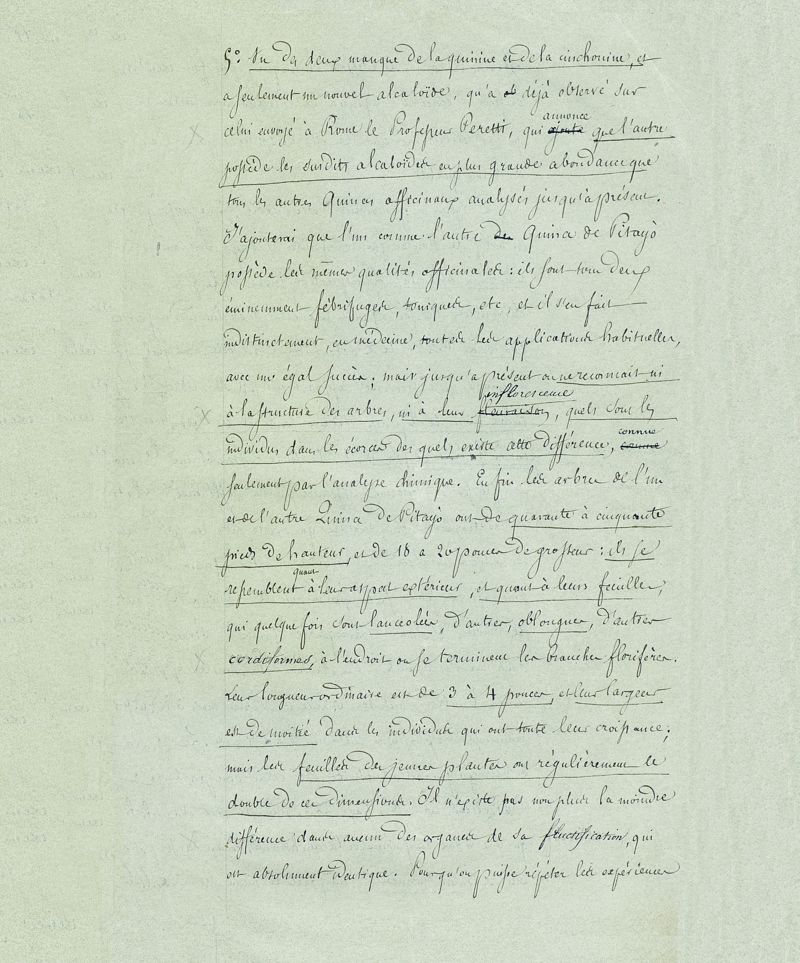 5º Un des deux manque de la quinine et de la cinchonine, et
a seulement un nouvel alcaloïde, qu'a déjà observé sur
celui envoyé à Rome le Professeur Peretti, qui ajoute annonce que l'autre
possède les susdits alcaloïdes en plus grande abondance que
tous les autres Quinas officinaux analysés jusqu'à présent.
J'ajouterai que l'un comme l'autre de Quina de Pitayò
possède les mêmes qualités officinales : ils sont tous deux
éminemment fébrifuges, toniques, etc, et il s'en fait
indistinctement, en médecine, toutes les applications habituelles,
avec un égal succès ; mais jusqu'à présent on ne reconnait ni
à la structure des arbres, ni à leur fleuraison inflorescence, quels sont les
individus dans les écorces des quels existe cette différence, comme connue
seulement par l'analyse chimique. En fin les arbres de l'un
et de l'autre Quina de Pitayò ont de quarante à cinquante
pieds de hauteur, et de 18 a 20 pouces de grosseur : ils se
ressemblent quant à leur aspect extérieur, et quant à leurs feuilles,
qui quelque fois sont lancéolées, d'autres, oblongues, d'autres
cordiformes, à l'endroit ou se terminent les branches florifères.
Leur longueur ordinaire est de 3 à 4 pouces, et leur largeur
est de moitié dans les individus qui ont toute leur croissance ;
mais les feuilles des jeunes plantes ont régulièrement le
double de ces dimensions. Il n'existe pas non plus la moindre
différence dans aucun des organes de sa fructification, qui
est absolument identique. Pour qu'on puisse répéter les expériences